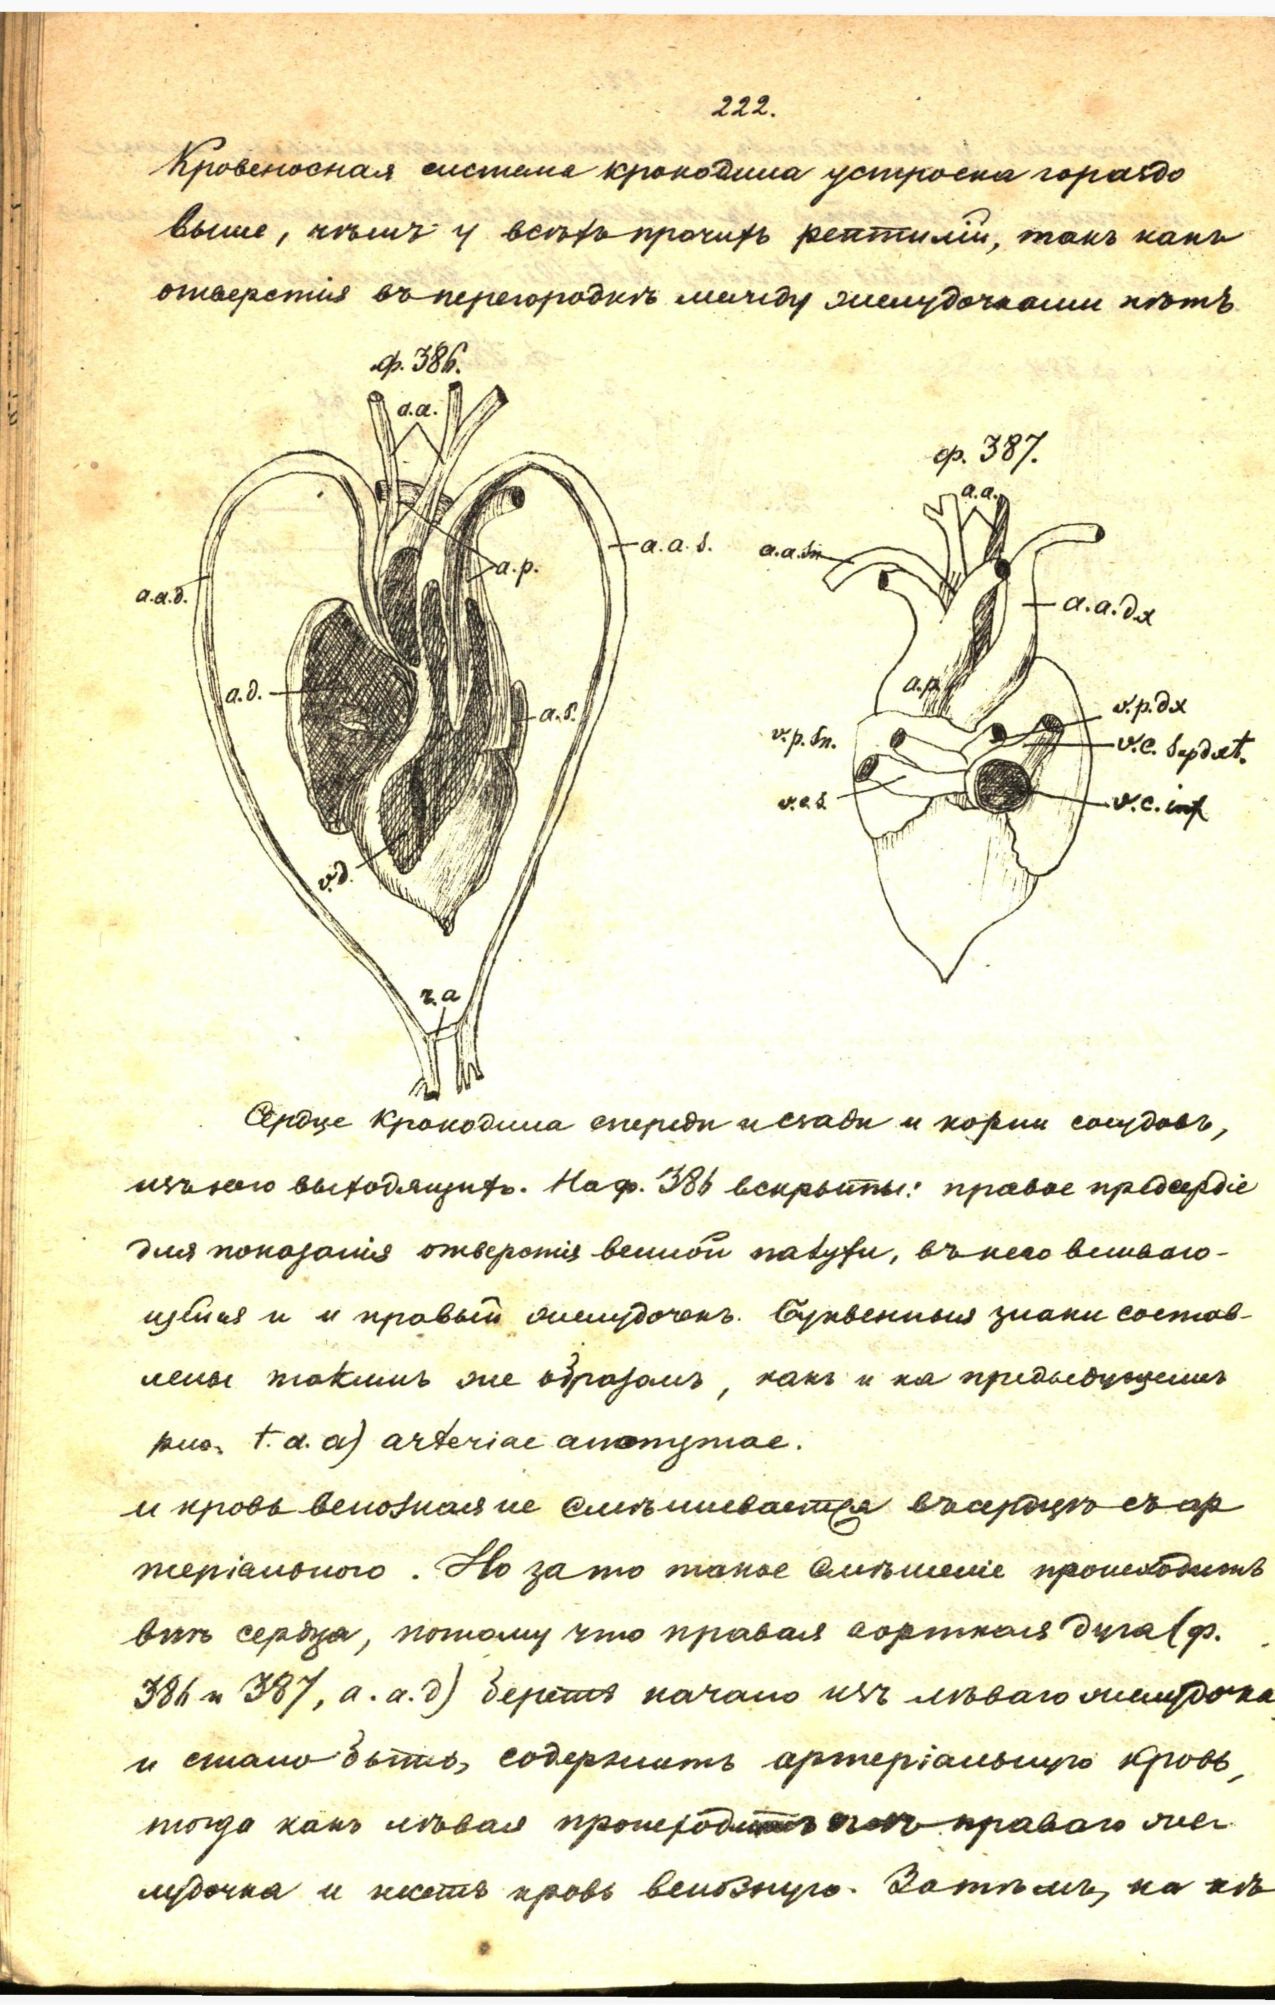 222.
Кровеносная система крокодила устроена гораздо
выше, чѣмъ у всѣхъ прочихъ рептилій, такъ какъ
отверстія въ перегородкѣ между желудочками нѣтъ
ф. 386.
a.a.
ф. 387.
a.a.
a.a.s.
a.a.sn
a.p.
a.a.d.
a.a.dx
a.d.
a.p.
a.s.
v.p.dx
v.p.sn.
v.c.supdxt.
v.c.s.
v.c.inf
v.d.
r.a
Сердце крокодила спереди и сзади и корни сосудовъ,
изъ него выходящихъ. На ф. 386 вскрыты: правое предсердіе
для показанія отверстія венной пазухи, въ него вливаю-
щейся и и правый желудочекъ. Буквенныя знаки состав-
лены такимъ же образомъ, какъ и на предыдущемъ
рис. t. a. a) arteriae anonymae.
и кровь венозная не смѣшивается въ сердцѣ съ ар
теріальною. Но за то такое смѣшеніе происходитъ
внѣ сердца, потому что правая аортная дуга (ф.
386 и 387, a. a. d) беретъ начало изъ лѣваго желудочка
и стало быть, содержитъ артеріальную кровь,
тогда какъ лѣвая происходитъ изъ праваго же-
лудочка и несетъ кровь венозную. Затѣмъ, на нѣ